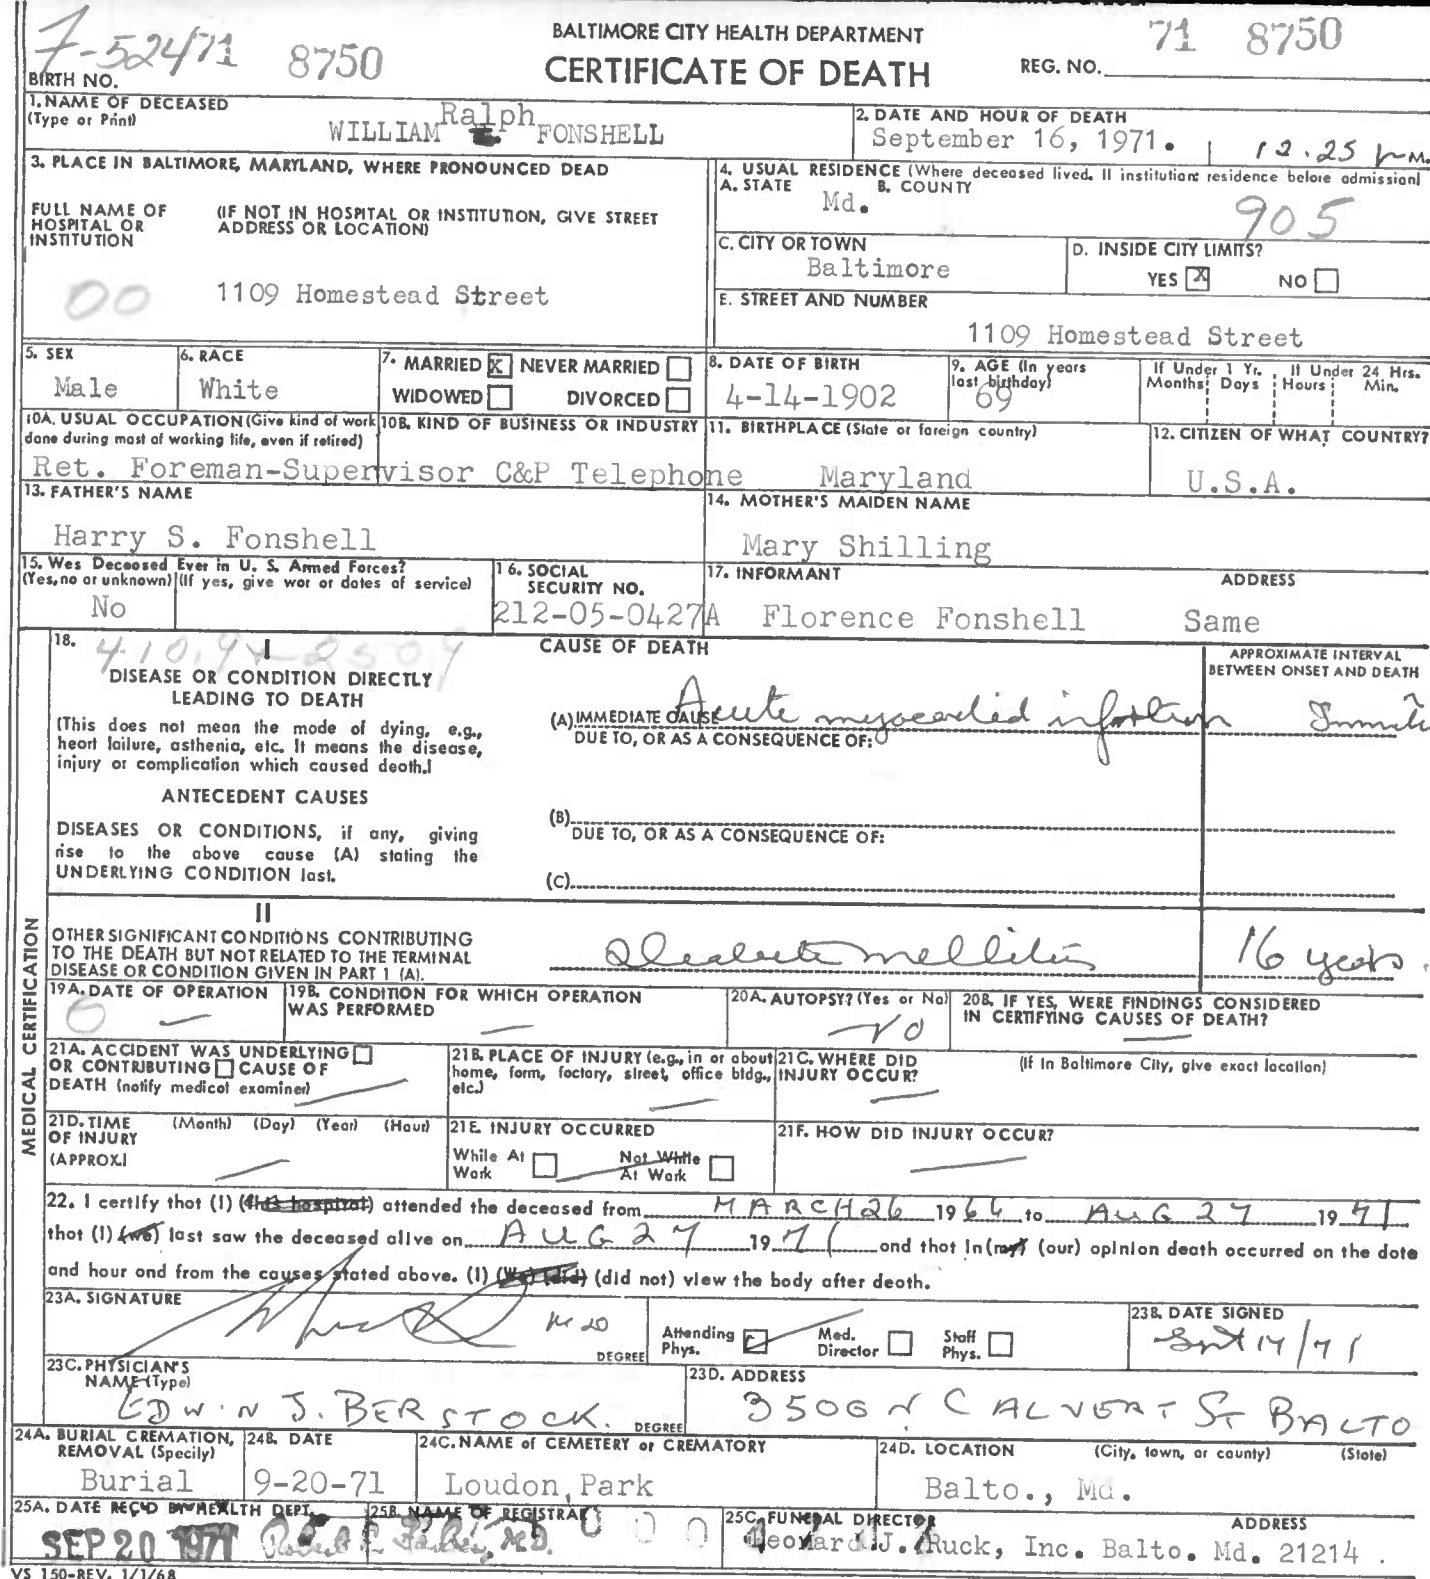 7-524/71 8750
BIRTH NO.
BALTIMORE CITY HEALTH DEPARTMENT
CERTIFICATE OF DEATH
71 8750
REG. NO.
1. NAME OF DECEASED
(Type or Print)
WILLIAM Ralph FONSHELL
2. DATE AND HOUR OF DEATH
September 16, 1971. 12.25 P M.
3. PLACE IN BALTIMORE, MARYLAND, WHERE PRONOUNCED DEAD
FULL NAME OF HOSPITAL OR INSTITUTION
(IF NOT IN HOSPITAL OR INSTITUTION, GIVE STREET ADDRESS OR LOCATION)
00 1109 Homestead Street
4. USUAL RESIDENCE (Where deceased lived. If institution: residence before admission)
A. STATE B. COUNTY
Md. 905
C. CITY OR TOWN
Baltimore
D. INSIDE CITY LIMITS?
YES X NO
E. STREET AND NUMBER
1109 Homestead Street
5. SEX
Male
6. RACE
White
7. MARRIED X NEVER MARRIED
WIDOWED DIVORCED
8. DATE OF BIRTH
4-14-1902
9. AGE (In years last birthday)
69
If Under 1 Yr. If Under 24 Hrs.
Months Days Hours Min.
10A. USUAL OCCUPATION (Give kind of work done during most of working life, even if retired)
10B. KIND OF BUSINESS OR INDUSTRY
Ret. Foreman-Supervisor C&P Telephone
11. BIRTHPLACE (State or foreign country)
Maryland
12. CITIZEN OF WHAT COUNTRY?
U.S.A.
13. FATHER'S NAME
Harry S. Fonshell
14. MOTHER'S MAIDEN NAME
Mary Shilling
15. Was Deceased Ever in U. S. Armed Forces?
(Yes, no or unknown) (If yes, give war or dates of service)
No
16. SOCIAL SECURITY NO.
212-05-0427A
17. INFORMANT ADDRESS
Florence Fonshell Same
MEDICAL CERTIFICATION
18. 410.9 250.9
I
DISEASE OR CONDITION DIRECTLY
LEADING TO DEATH
(This does not mean the mode of dying, e.g.,
heart failure, asthenia, etc. It means the disease,
injury or complication which caused death.)
ANTECEDENT CAUSES
DISEASES OR CONDITIONS, if any, giving
rise to the above cause (A) stating the
UNDERLYING CONDITION last.
CAUSE OF DEATH
APPROXIMATE INTERVAL
BETWEEN ONSET AND DEATH
(A) IMMEDIATE CAUSE Acute myocardial infarction
DUE TO, OR AS A CONSEQUENCE OF:
(B)
DUE TO, OR AS A CONSEQUENCE OF:
(C)
II
OTHER SIGNIFICANT CONDITIONS CONTRIBUTING
TO THE DEATH BUT NOT RELATED TO THE TERMINAL
DISEASE OR CONDITION GIVEN IN PART 1 (A).
Diabetes mellitus 16 years.
19A. DATE OF OPERATION
0 —
19B. CONDITION FOR WHICH OPERATION WAS PERFORMED
—
20A. AUTOPSY? (Yes or No)
NO
20B. IF YES, WERE FINDINGS CONSIDERED IN CERTIFYING CAUSES OF DEATH?
—
21A. ACCIDENT WAS UNDERLYING
OR CONTRIBUTING CAUSE OF
DEATH (notify medical examiner)
21B. PLACE OF INJURY (e.g., in or about
home, farm, factory, street, office bldg.,
etc.)
21C. WHERE DID INJURY OCCUR?
(If in Baltimore City, give exact location)
21D. TIME OF INJURY (APPROX.)
(Month) (Day) (Year) (Hour)
21E. INJURY OCCURRED
While At Work Not While At Work
21F. HOW DID INJURY OCCUR?
22. I certify that (I) (this hospital) attended the deceased from MARCH 26 1964 to AUG 27 1971
that (I) (we) last saw the deceased alive on AUG 27 1971 and that in (my) (our) opinion death occurred on the date
and hour and from the causes stated above. (I) (We) (did) (did not) view the body after death.
23A. SIGNATURE
MD
DEGREE
Attending Phys. Med. Director Staff Phys.
23B. DATE SIGNED
Sept 17/71
23C. PHYSICIAN'S NAME (Type)
EDWIN J. BERSTOCK.
DEGREE
23D. ADDRESS
3506 N CALVERT ST BALTO
24A. BURIAL CREMATION, REMOVAL (Specify)
Burial
24B. DATE
9-20-71
24C. NAME of CEMETERY or CREMATORY
Loudon Park
24D. LOCATION (City, town, or county) (State)
Balto., Md.
25A. DATE REC'D BY HEALTH DEPT.
SEP 20 1971
25B. NAME OF REGISTRAR
Robert E. Farber, M.D.
25C. FUNERAL DIRECTOR ADDRESS
Leonard J. Ruck, Inc. Balto. Md. 21214.
VS 150-REV. 1/1/68